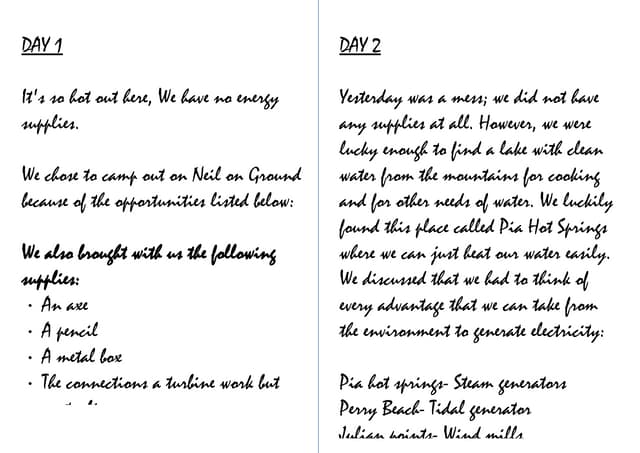 DAY 1
It's so hot out here, We have no energy
supplies.
We chose to camp out on Neil on Ground
because of the opportunities listed below:
We also brought with us the following
supplies:
• An axe
• A pencil
• A metal box
• The connections a turbine work but
DAY 2
Yesterday was a mess; we did not have
any supplies at all. However, we were
lucky enough to find a lake with clean
water from the mountains for cooking
and for other needs of water. We luckily
found this place called Pia Hot Springs
where we can just heat our water easily.
We discussed that we had to think of
every advantage that we can take from
the environment to generate electricity:
Pia hot springs- Steam generators
Perry Beach- Tidal generator
Julian points- Wind mills